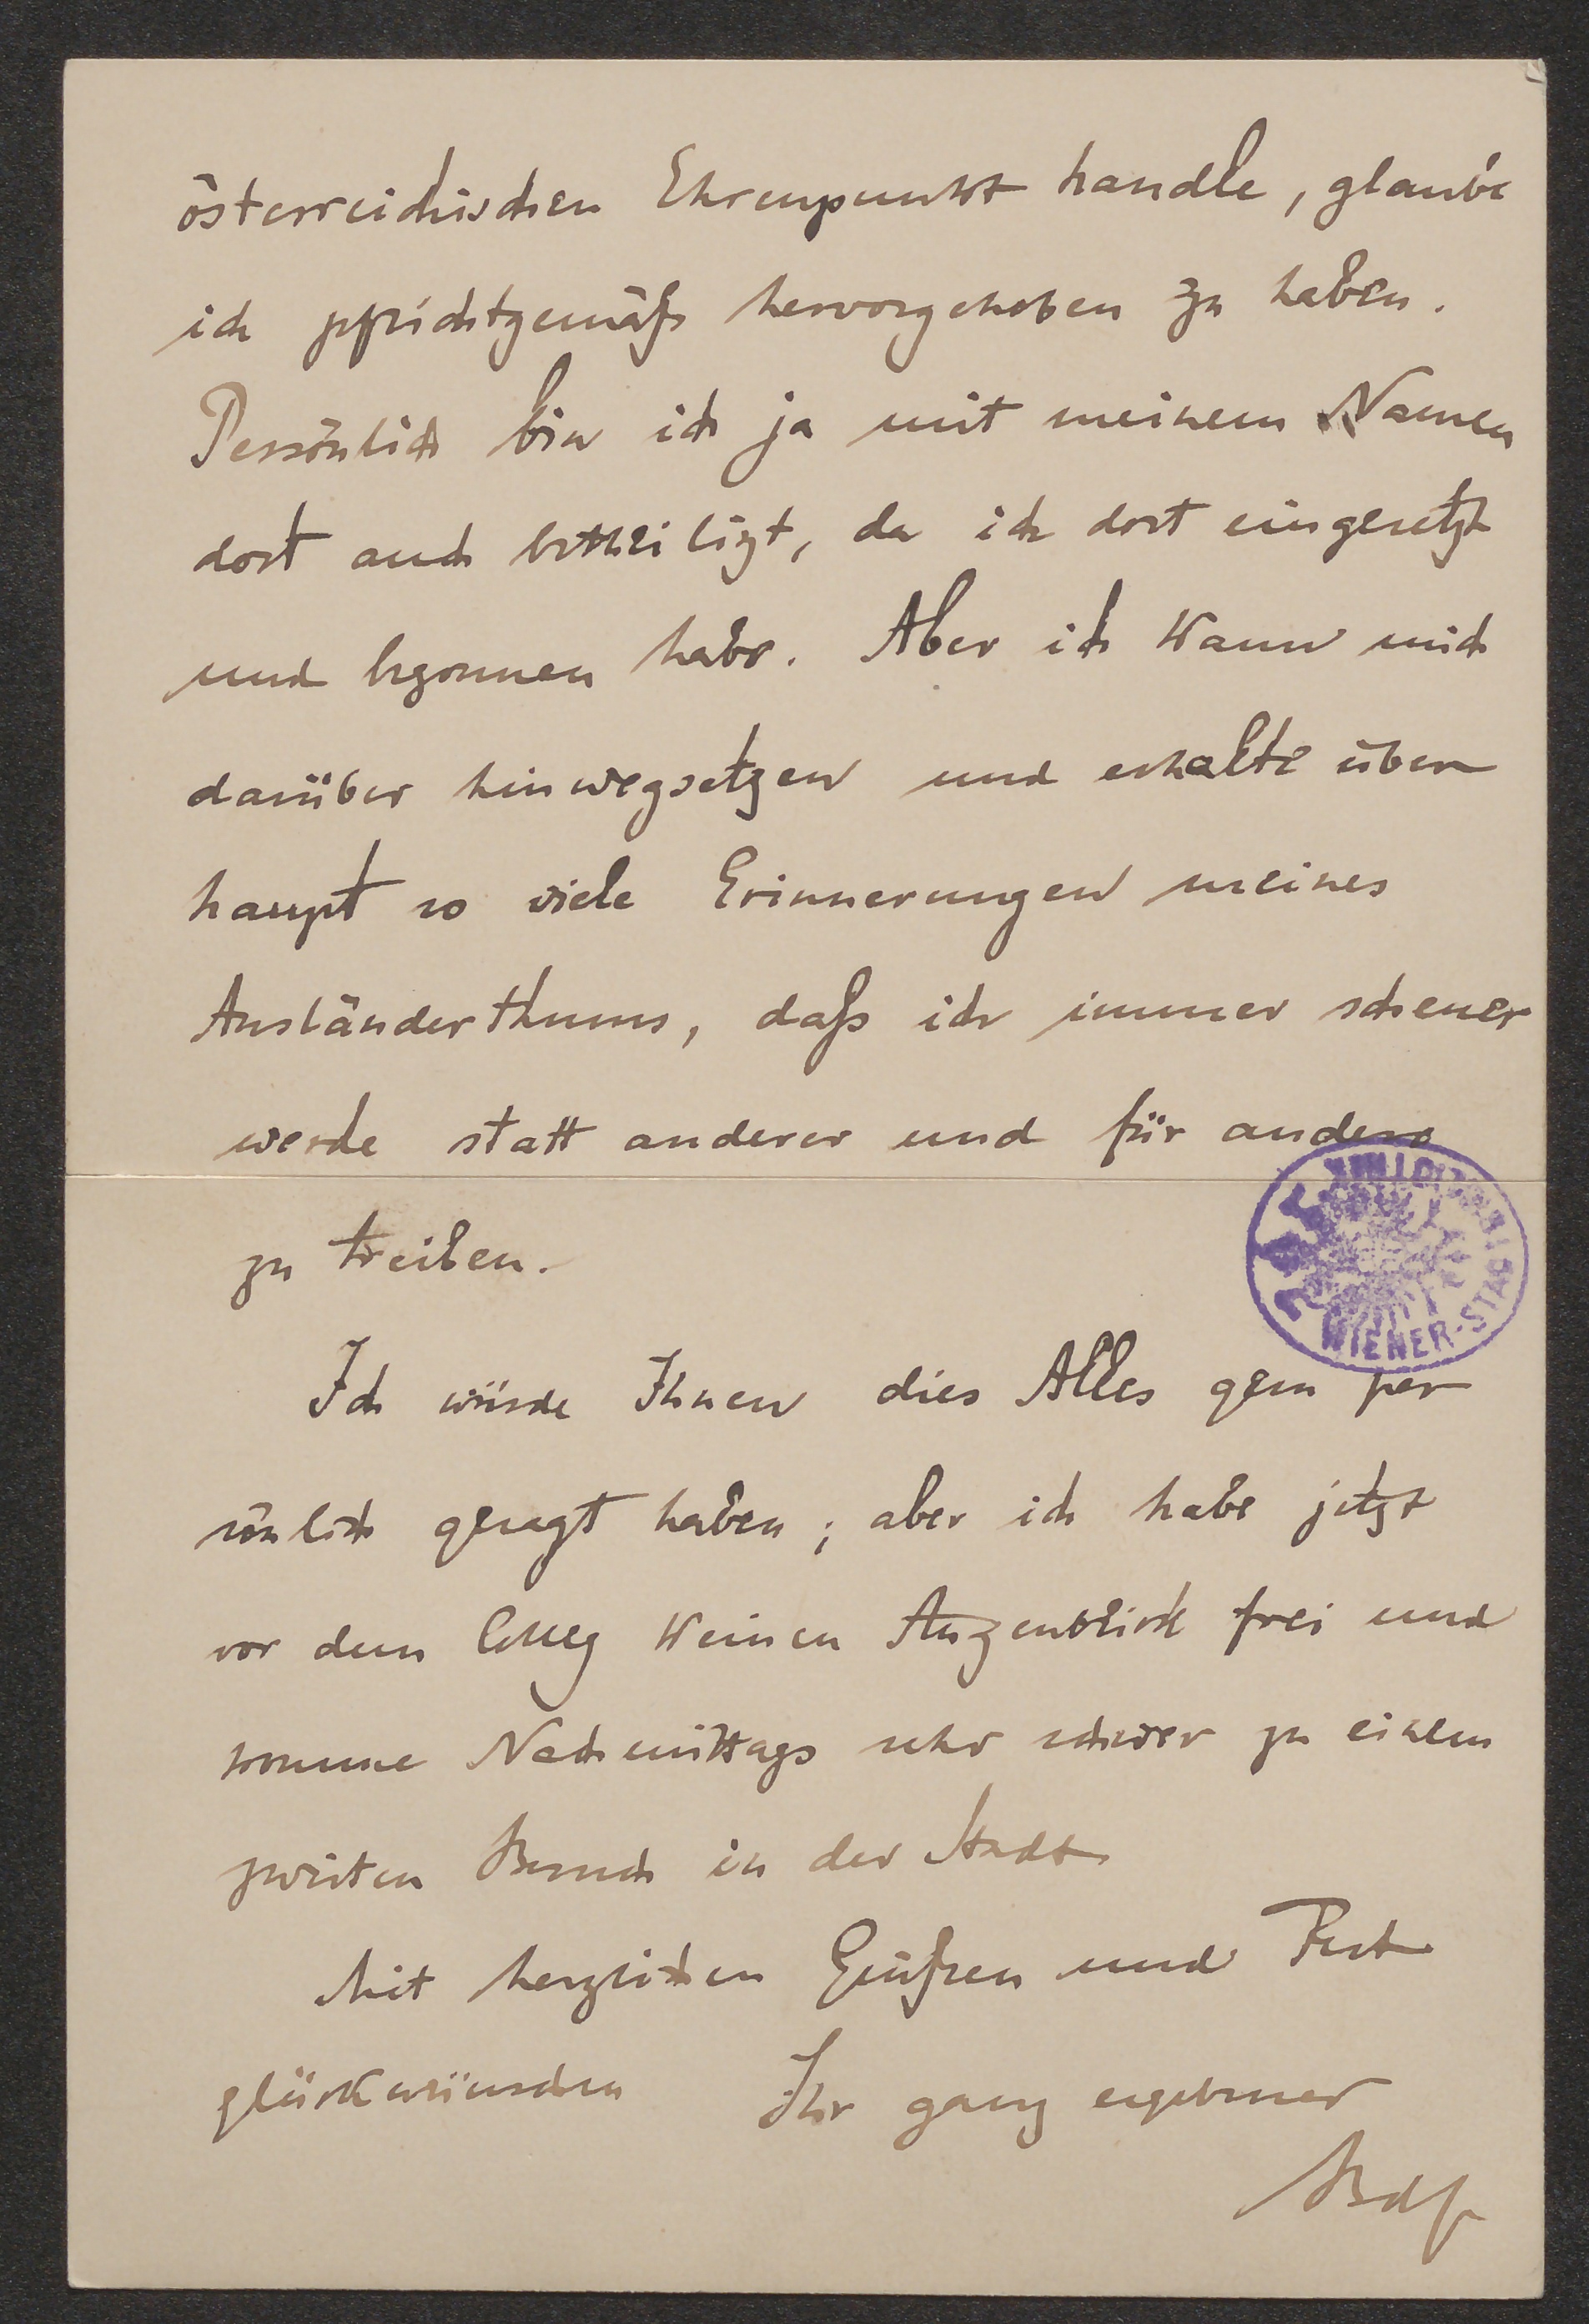 österreichischen Ehrenpunkt handle, glaube
ich pflichtgemäß hervorgehoben zu haben.
Persönlich bin ich ja mit meinem Namen
dort auch betheiligt, da ich dort eingesetzt
und begonnen habe. Aber ich kann mich
darüber hinwegsetzen und erhalte über
haupt so viele Erinnerungen meines
Ausländerthums, daß ich immer scheuer
werde statt anderer und für andere
zu treiben.
WIENER-STADTBIBLIOTHEK
Ich würde Ihnen dies Alles gern per
sönlich gesagt haben; aber ich habe jetzt
vor dem Colleg keinen Augenblick frei und
komme Nachmittags sehr schwer zu einem
zweiten Besuch in der Stadt
Mit herzlichen Grüßen und Fest
glückwünschen Ihr ganz ergebener